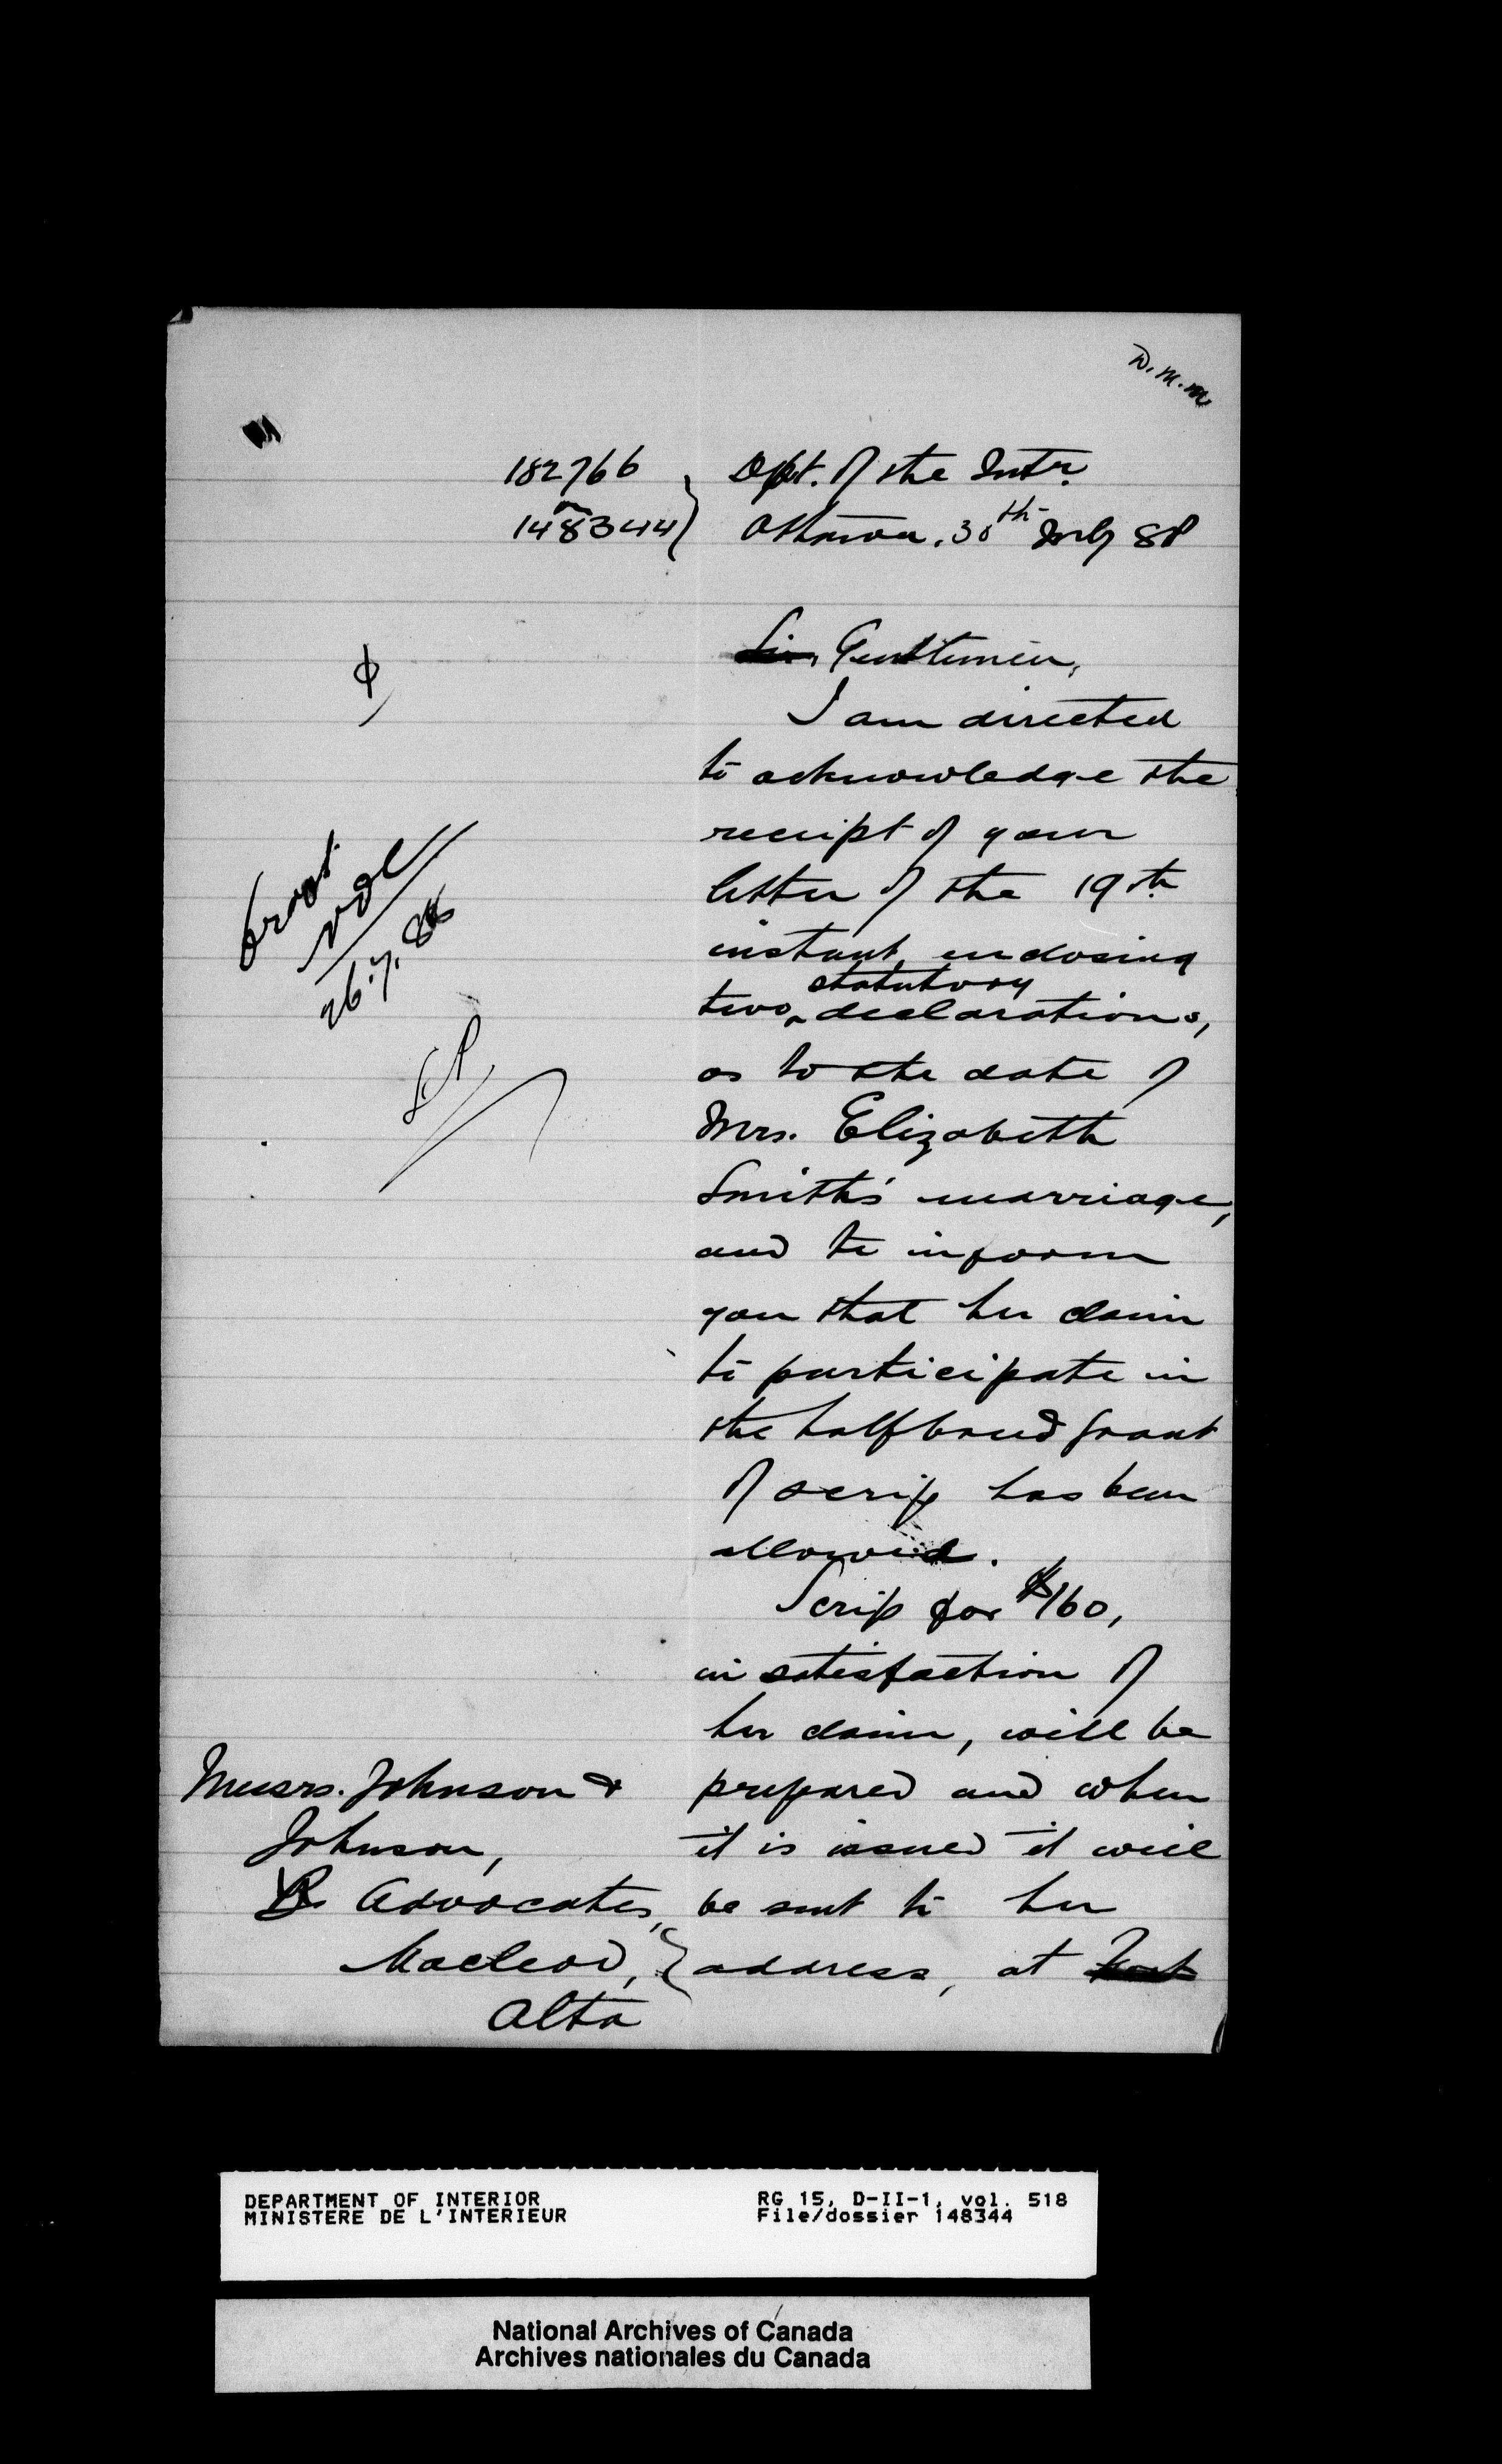 D.M.M
182766
on
148344
Dept. of the Intr.
Ottawa. 30th July 88
Sir, Gentlemen,
I am directed
to acknowledge the
receipt of your
letter of the 19th
instant, enclosing
two statutory declarations,
as to the date of
Mrs. Elizabeth
Smith's marriage,
and to inform
you that her claim
to participate in
the halfbreed grant
of scrip has been
allowed.
Scrip for $160,
in satisfaction of
her claim, will be
prepared and when
it is issued it will
be sent to her
address, at Fort
26.7.88
Messrs. Johnson &
Johnson,
B Advocates,
Macleod,
Alta
DEPARTMENT OF INTERIOR
MINISTERE DE L'INTERIEUR
RG 15, D-II-1, vol. 518
File/dossier 148344
National Archives of Canada
Archives nationales du Canada